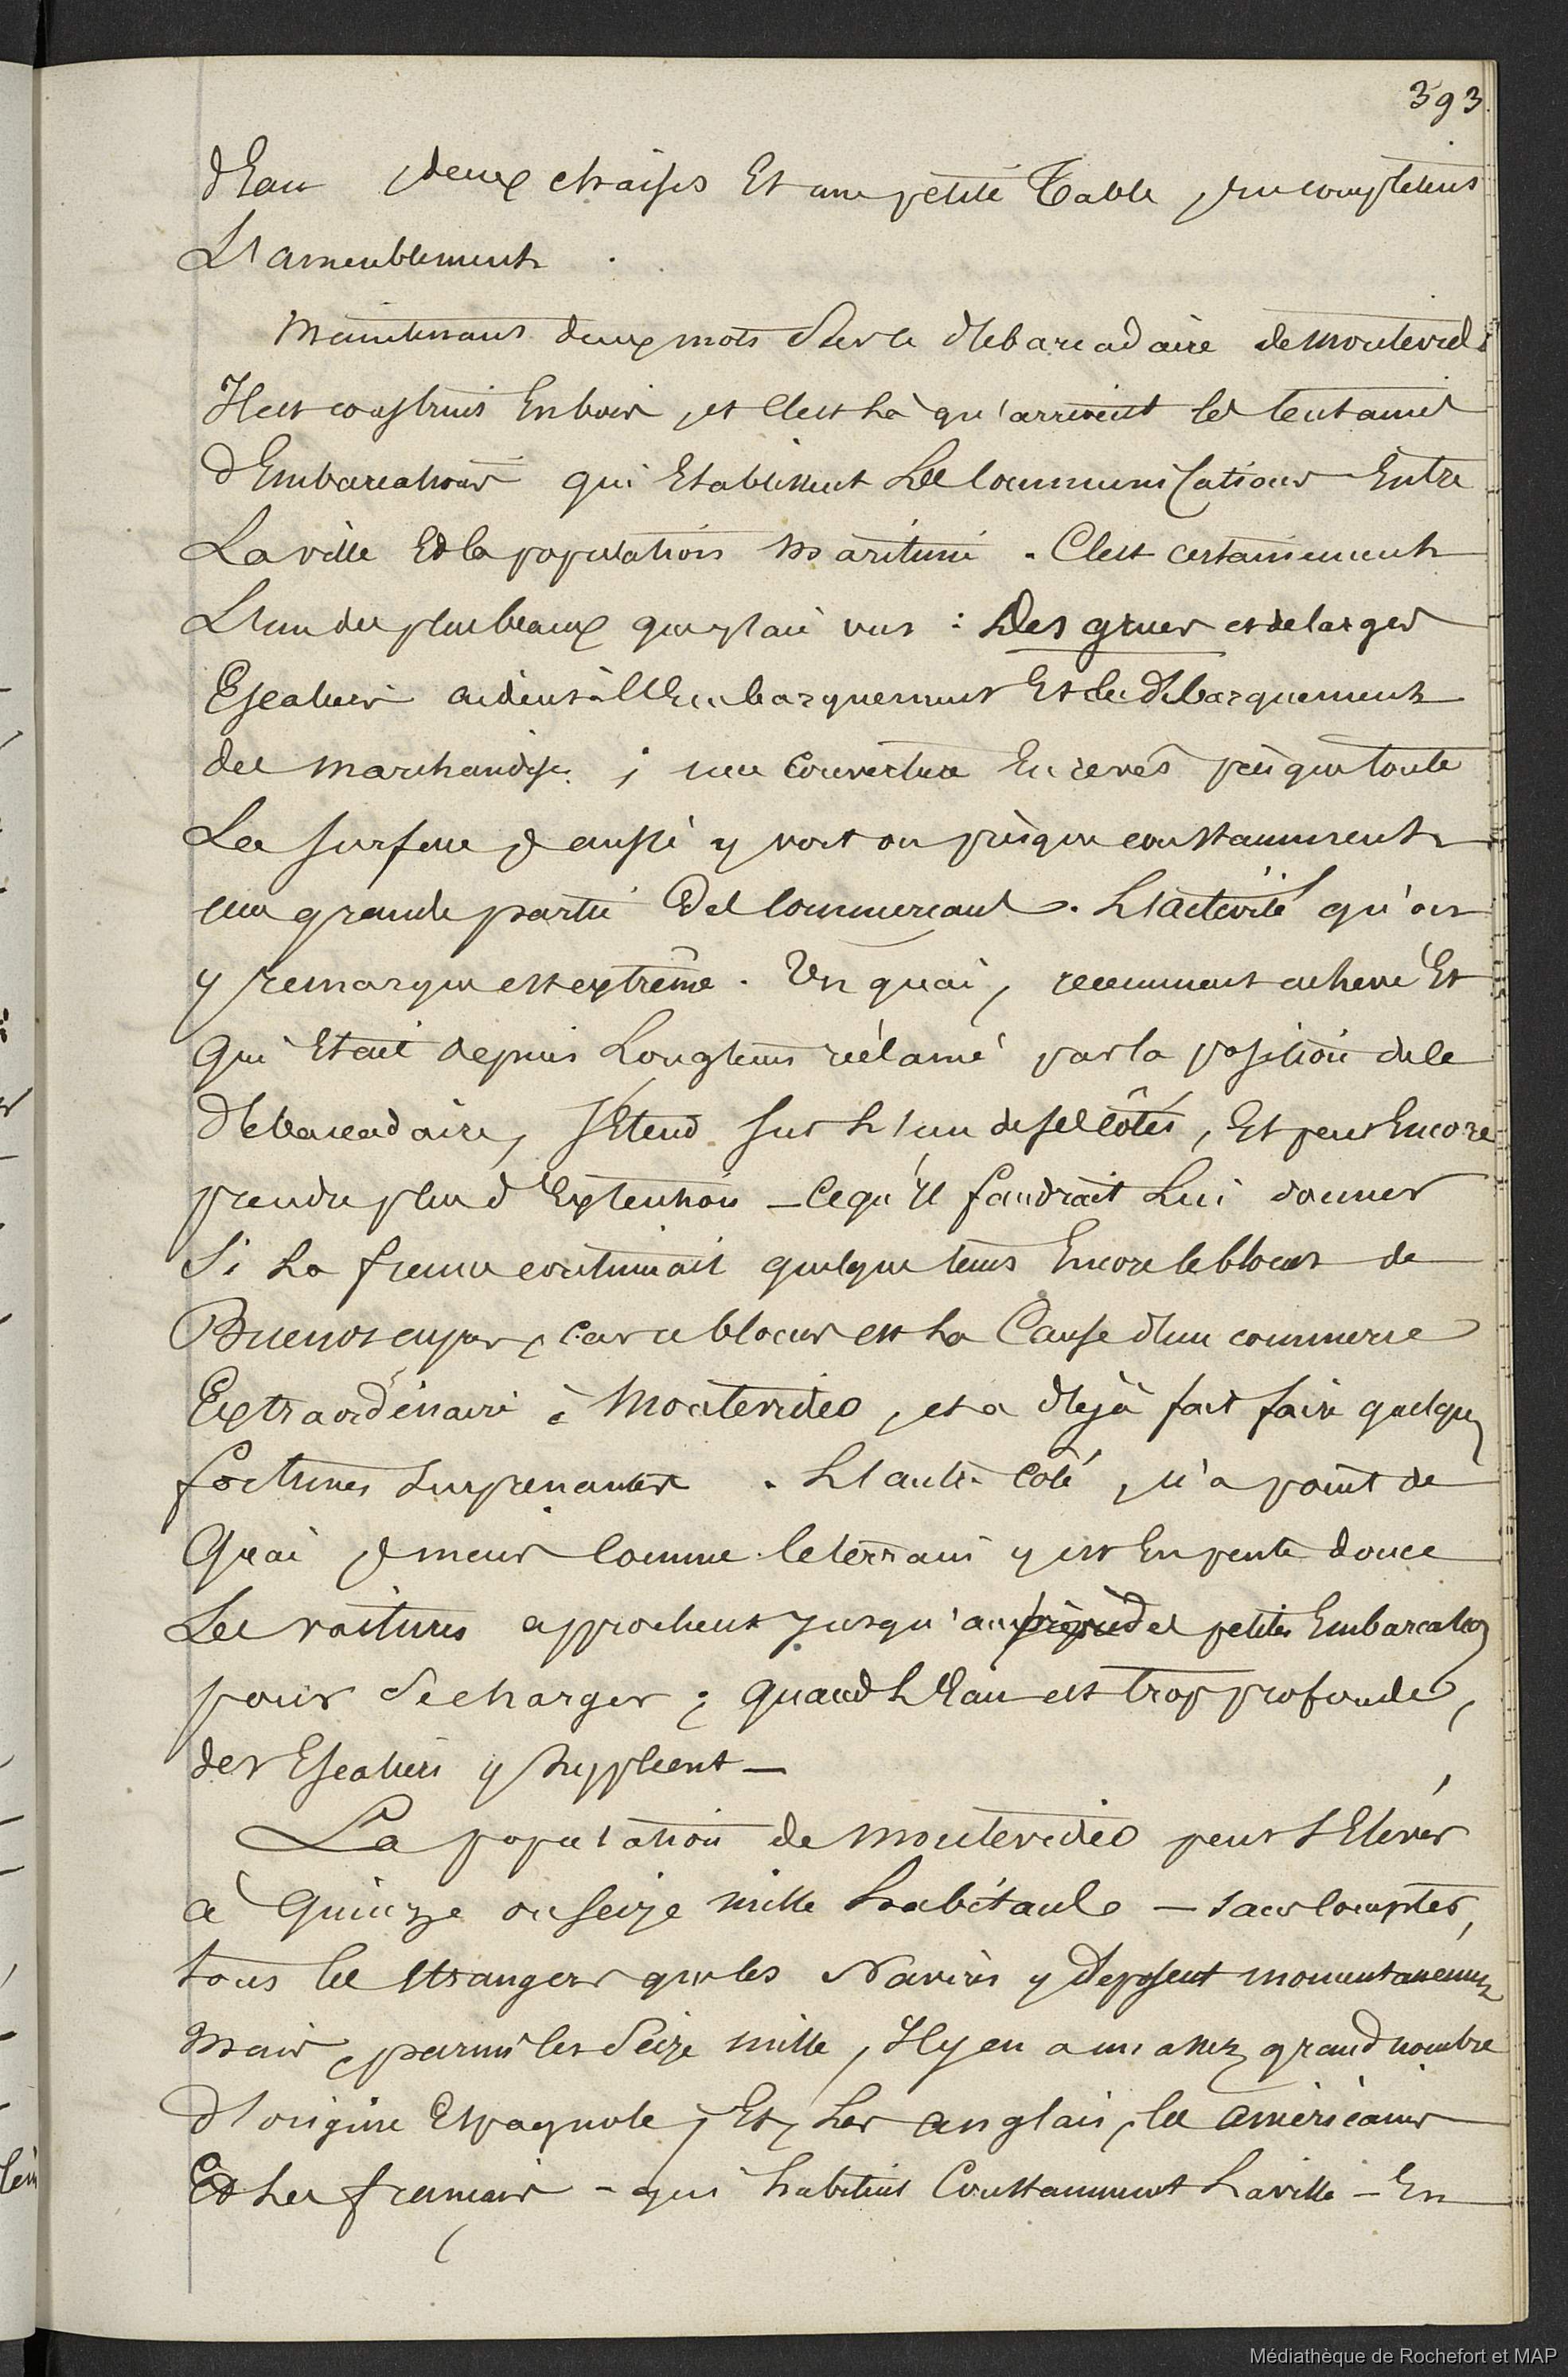 393
d'Eau , deux chaises Et une petite Table , en completent
L'ameublement .
Maintenant deux mots Sur le débarcadaire de montevideo
Il est construit En bois , et c'est là qu'arrivent les
d'Embarcations qui Etablissent Les Communications Entre
La ville Et la population maritime . C'est certainement
L'un des plus beaux que j'ai vus : Des grues et de larges
Escaliers aident à l'Embarquement Et le débarquement
des marchandises ; une Couverture En presque toute
La surface & aussi y voit on presque constamment
une grande partie des Commercants . L'activité qu'on
y remarque est extrême . Un quai , recemment achevé Et
Qui Etait depuis Longtems réclamé par la position de le
débarcadaire , s'Etend sur L'un de ses côtés , Et peut Encore
prendre plus d'Extention — Ce qu'il faudrait Lui donner
Si La france continuait quelque tems Encore le blocus de
Buenos ayres , car ce blocus est La Cause d'un commerce
Extraordinaire à Montevideo , et a déjà fait faire quelques
fortunes surprenantes . L'autre Coté , n'a point de
Quai & mais Comme le terrain y est En pente douce
Les voitures approchent jusqu'auprès des petites Embarcations
pour Se charger ; quand L'Eau est trop profonde ,
des Escaliers y suppléent —
La population de montevideo peut s'Elever
à Quinze ou seize mille habitants — sans Compter ,
tous les étrangers que les Navires y déposent momentanement
mais , parmi les Seize mille , Il y en a un assez grand nombre
d'origine Espagnole , Et , Les anglais , les américains
Et Les français – qui habitent Constamment La ville – En
Médiathèque de Rochefort et MAP